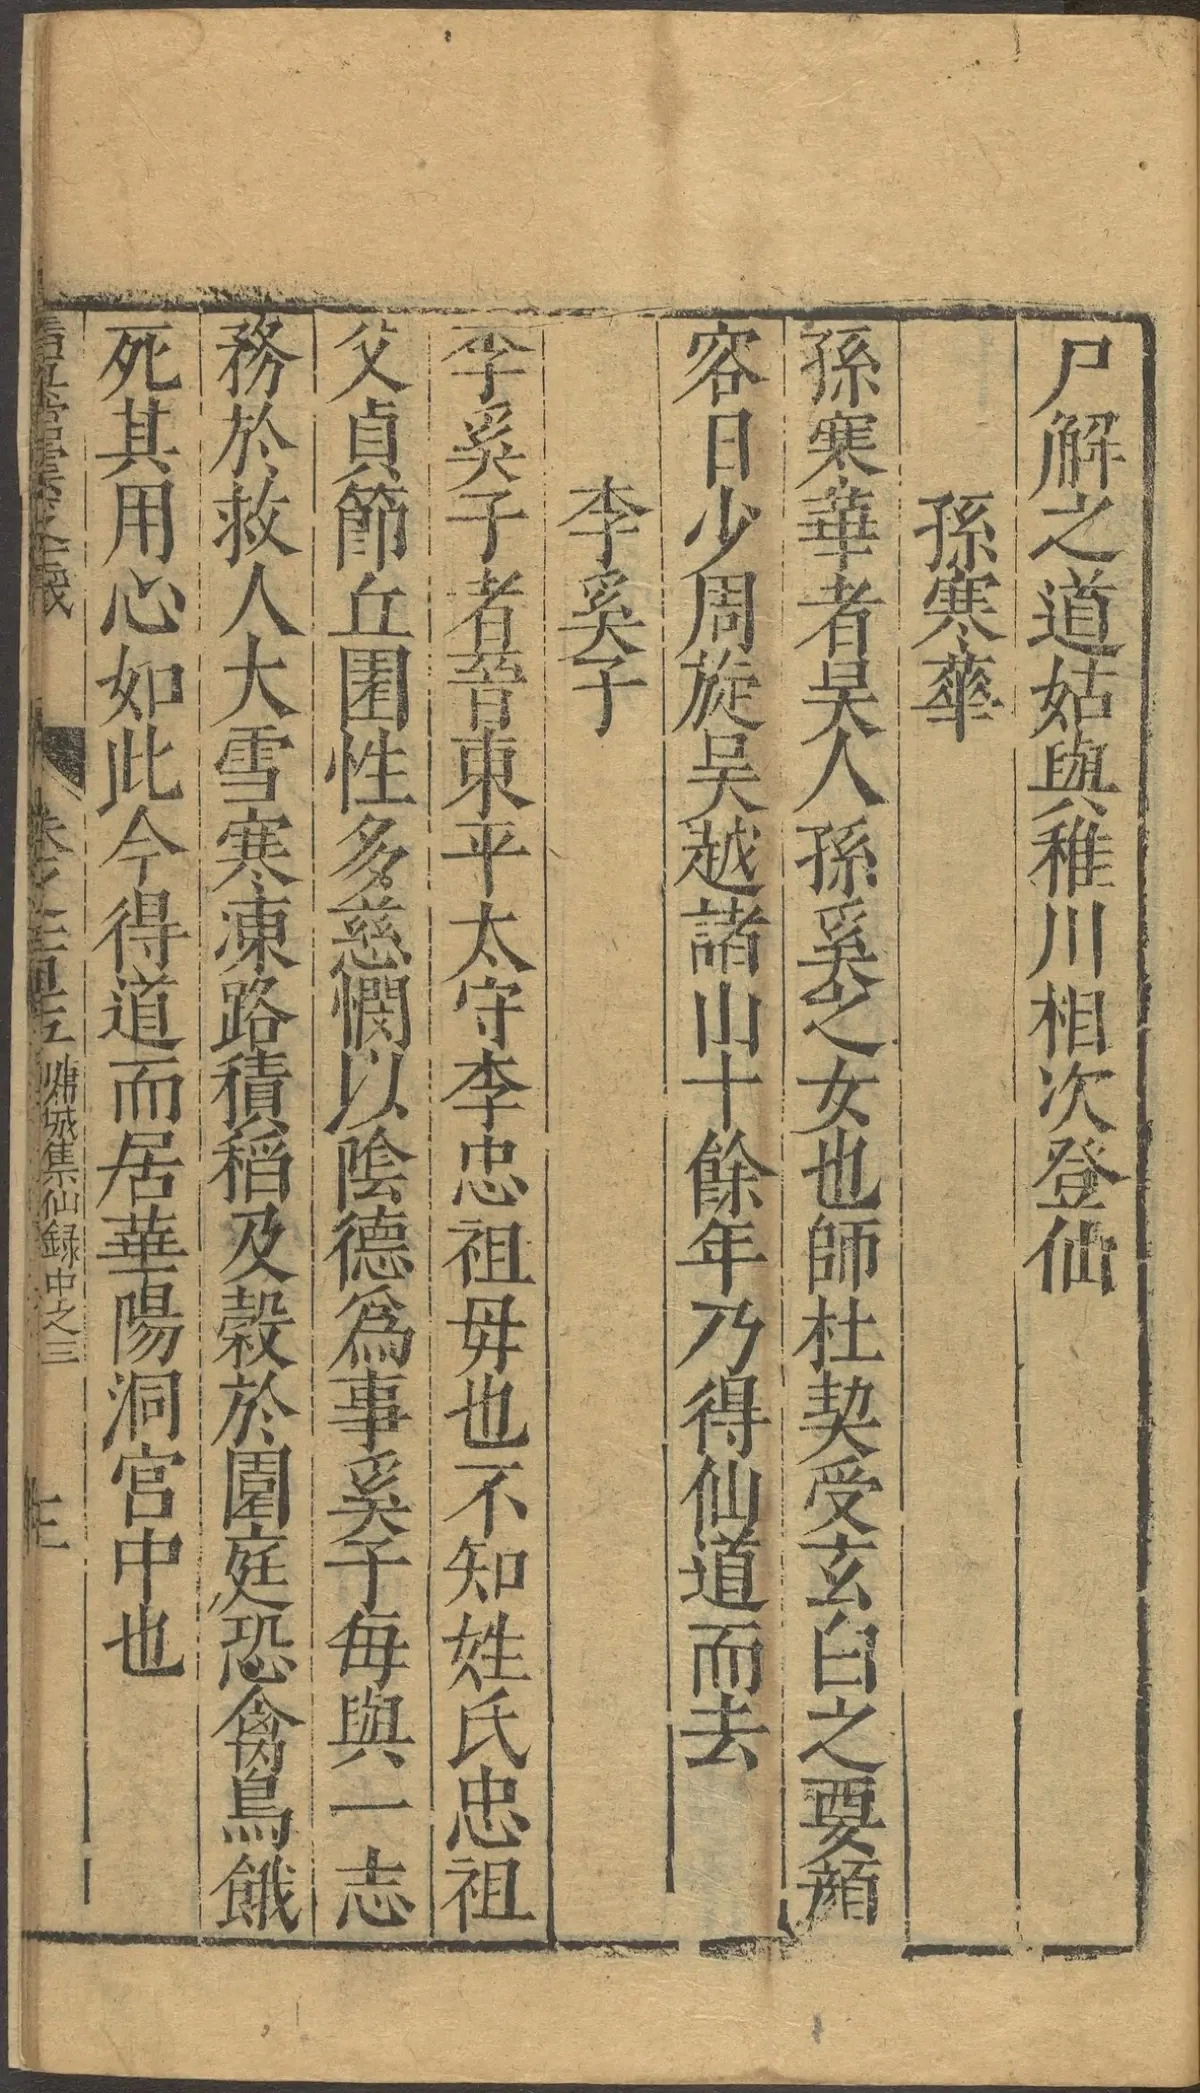 尸解之道姑與稚川相次登仙
孫寒華
孫寒華者吴人孫奚之女也師杜契受玄白之要顔
容日少周旋吴越諸山十餘年乃得仙道而去
李奚子
李奚子者晉東平太守李忠祖毋也不知姓氏忠祖
父貞節丘園性多慈憫以陰德爲事奚子每與一志
務於救人大雪寒凍路積稻及穀於園庭恐禽鳥餓
死其用心如此今得道而居華陽洞宫中也
墉城集仙録中之三